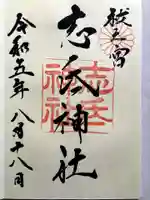 志氐神社
令和五年 八月十八日
志氐神社